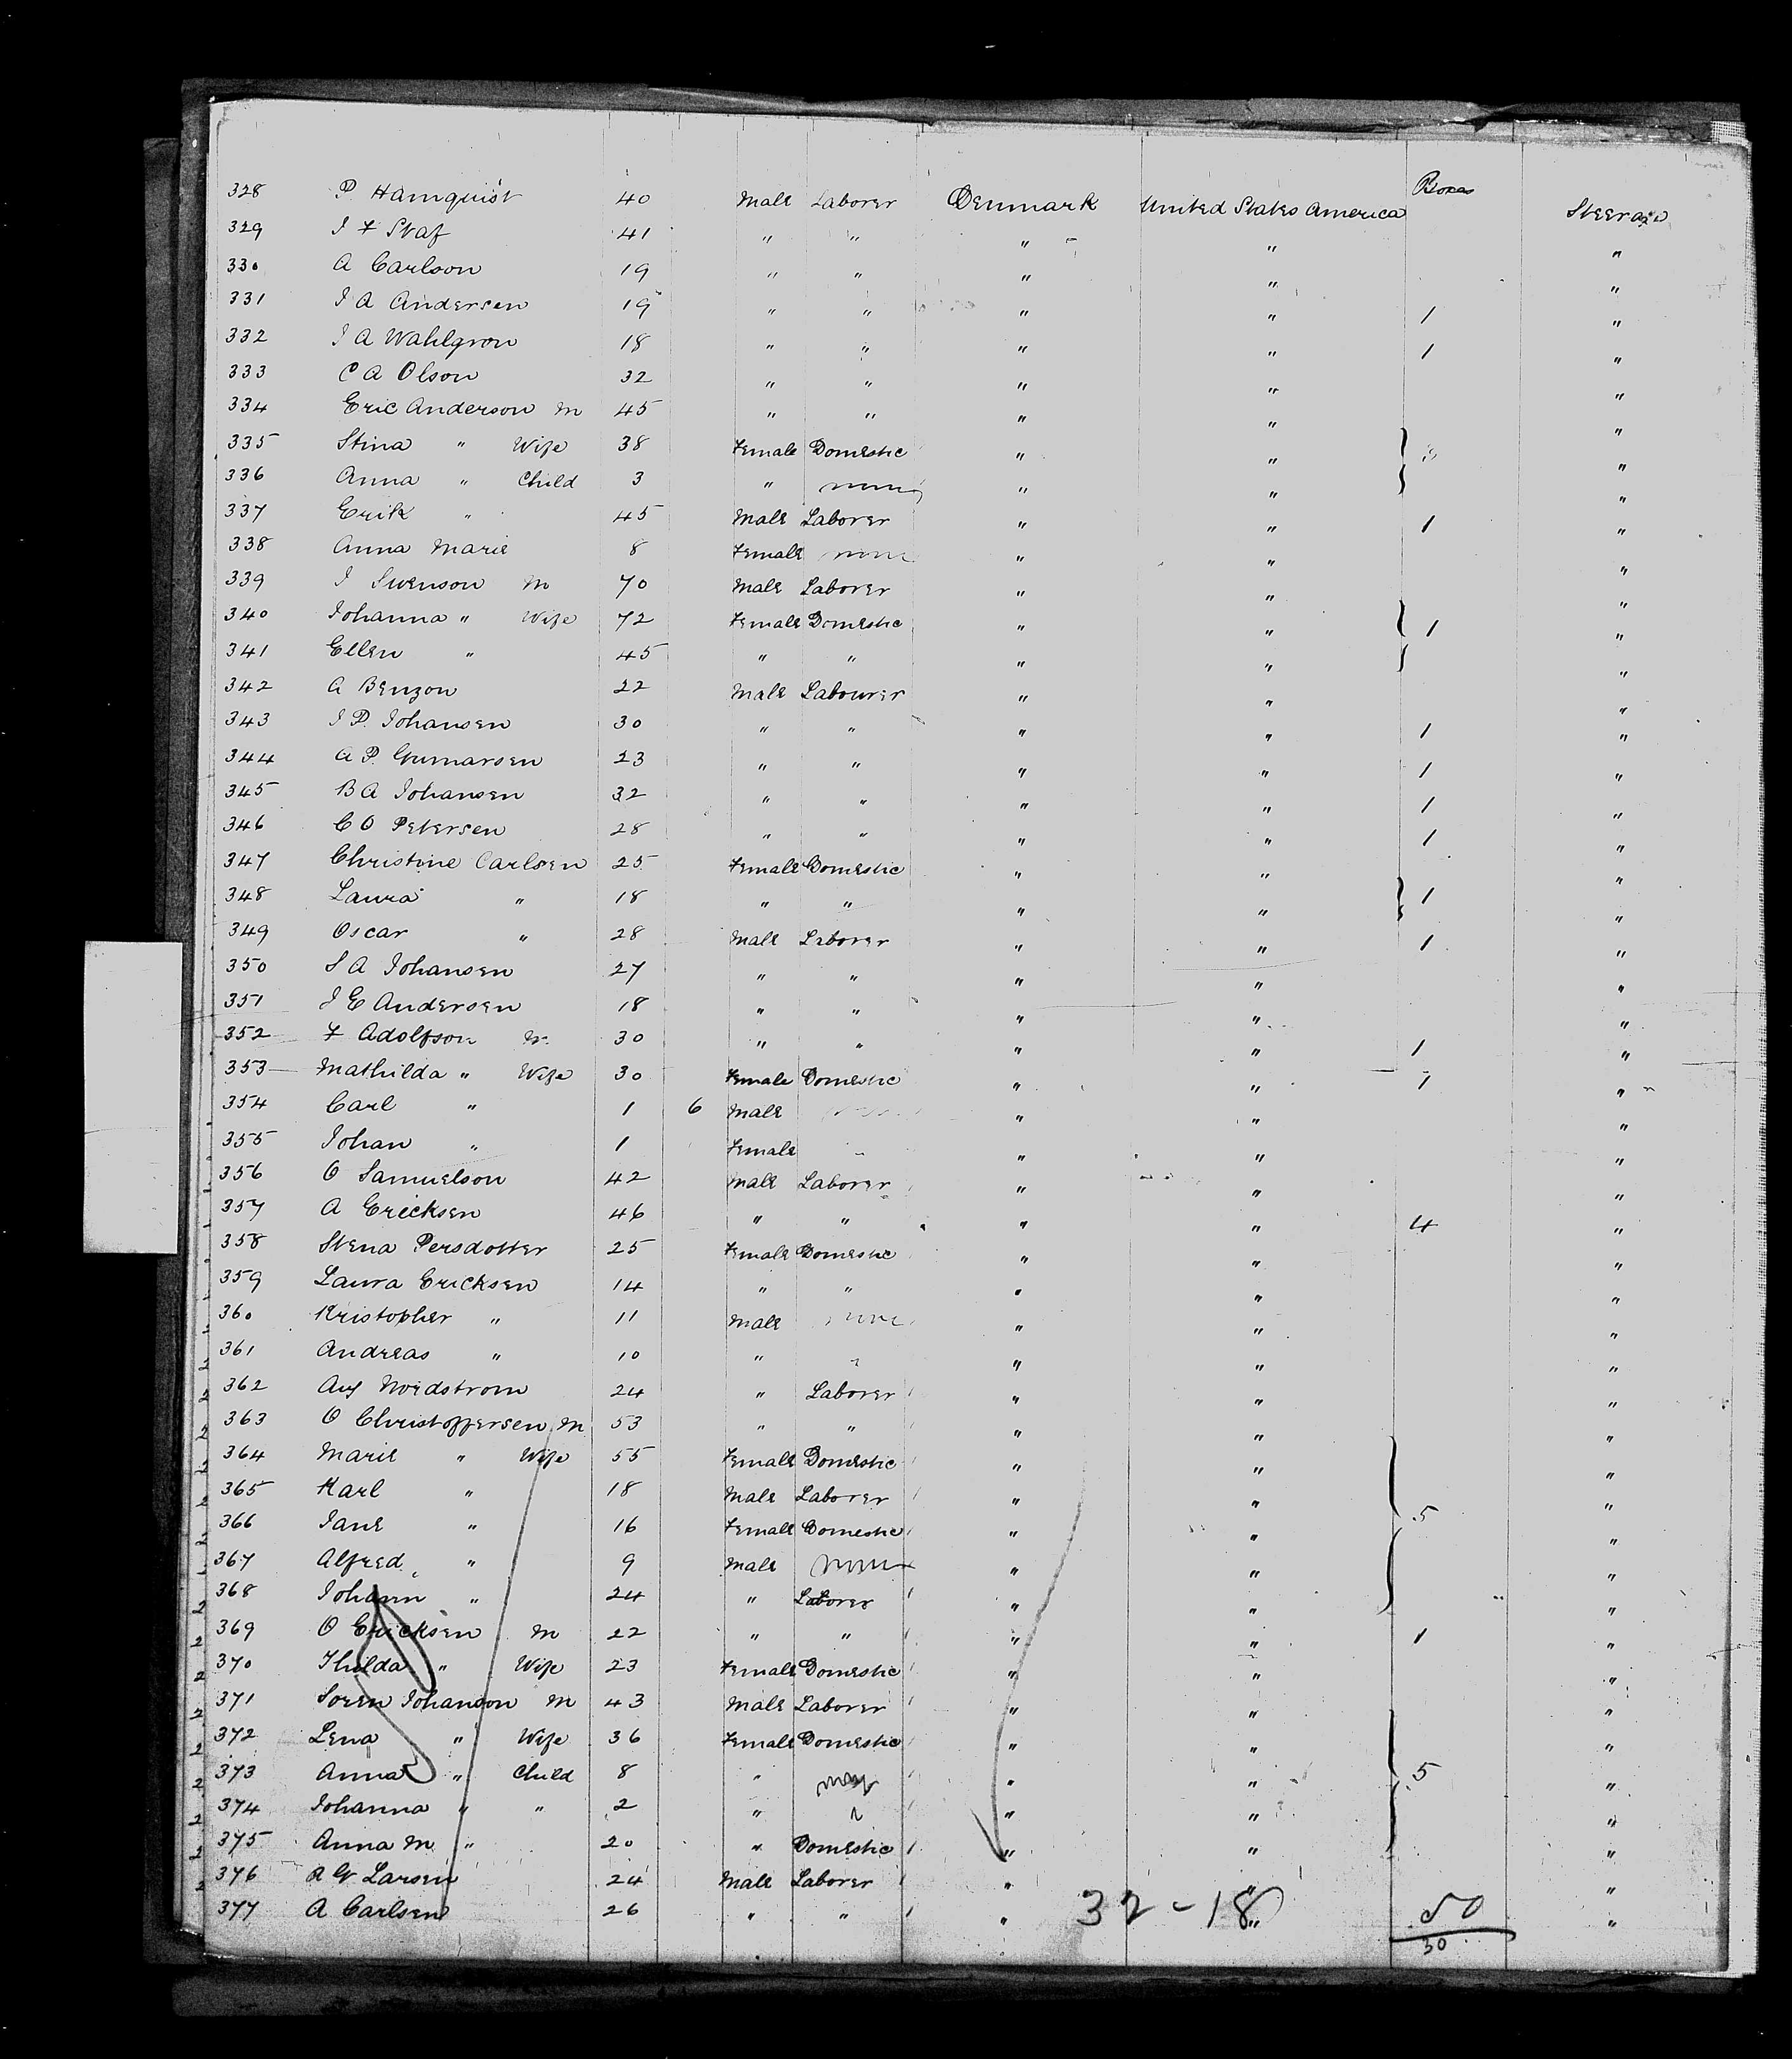 328 P. Hamquist 40 Male Laborer Denmark United States America Boxes Steerage
329 I F Staf 41 " " " " "
330 A Carlson 19 " " " " "
331 I A Andersen 19 " " " " 1 "
332 I A Wahlgron 18 " " " " 1 "
333 C A Olson 32 " " " " "
334 Eric Anderson M 45 " " " " "
335 Stina " Wife 38 Female Domestic " " "
336 Anna " Child 3 " none " " "
337 Erik " 45 Male Laborer " " 1 "
338 Anna Marie 8 Female none " " "
339 I Swenson M 70 Male Laborer " " "
340 Iohanna " Wife 72 Female Domestic " " 1 "
341 Ellen " 45 " " " " "
342 A Benzon 22 Male Labourer " " "
343 I P. Iohansen 30 " " " " 1 "
344 A P. Gumarsen 23 " " " " 1 "
345 B A Iohansen 32 " " " " 1 "
346 C O Petersen 28 " " " " 1 "
347 Christine Carlsen 25 Female Domestic " " "
348 Laura " 18 " " " " 1 "
349 Oscar " 28 Male Laborer " " 1 "
350 S A Iohansen 27 " " " " "
351 I E Andersen 18 " " " " "
352 F Adolfson M 30 " " " " 1 "
353 Mathilda " Wife 30 Female Domestic " " 1 "
354 Carl " 1 6 Male " " "
355 Iohan " 1 Female " " " "
356 O Samuelson 42 Male Laborer " " "
357 A Ericksen 46 " " " " 4 "
358 Stena Persdotter 25 Female Domestic " " "
359 Laura Ericksen 14 " " " " "
360 Kristopher " 11 Male none " " "
361 Andreas " 10 " " " " "
362 Aug Nordstrom 24 " Laborer " " "
363 O Christoffersen M 53 " " " " "
364 Marie " Wife 55 Female Domestic " " "
365 Karl " 18 Male Laborer " " "
366 Iane " 16 Female Domestic " " 5 "
367 Alfred " 9 Male none " " "
368 Iohann " 24 " Laborer " " "
369 O Ericksen M 22 " " " " 1 "
370 Thilda " Wife 23 Female Domestic " " "
371 Soren Iohanson M 43 Male Laborer " " "
372 Lena " Wife 36 Female Domestic " " "
373 Anna " Child 8 " " " 5 "
374 Iohanna " " 2 " " " " "
375 Anna M " 20 " Domestic " " "
376 A W Larsen 24 Male Laborer " " "
377 A Carlsen 26 " " " " "
32-18 50
30